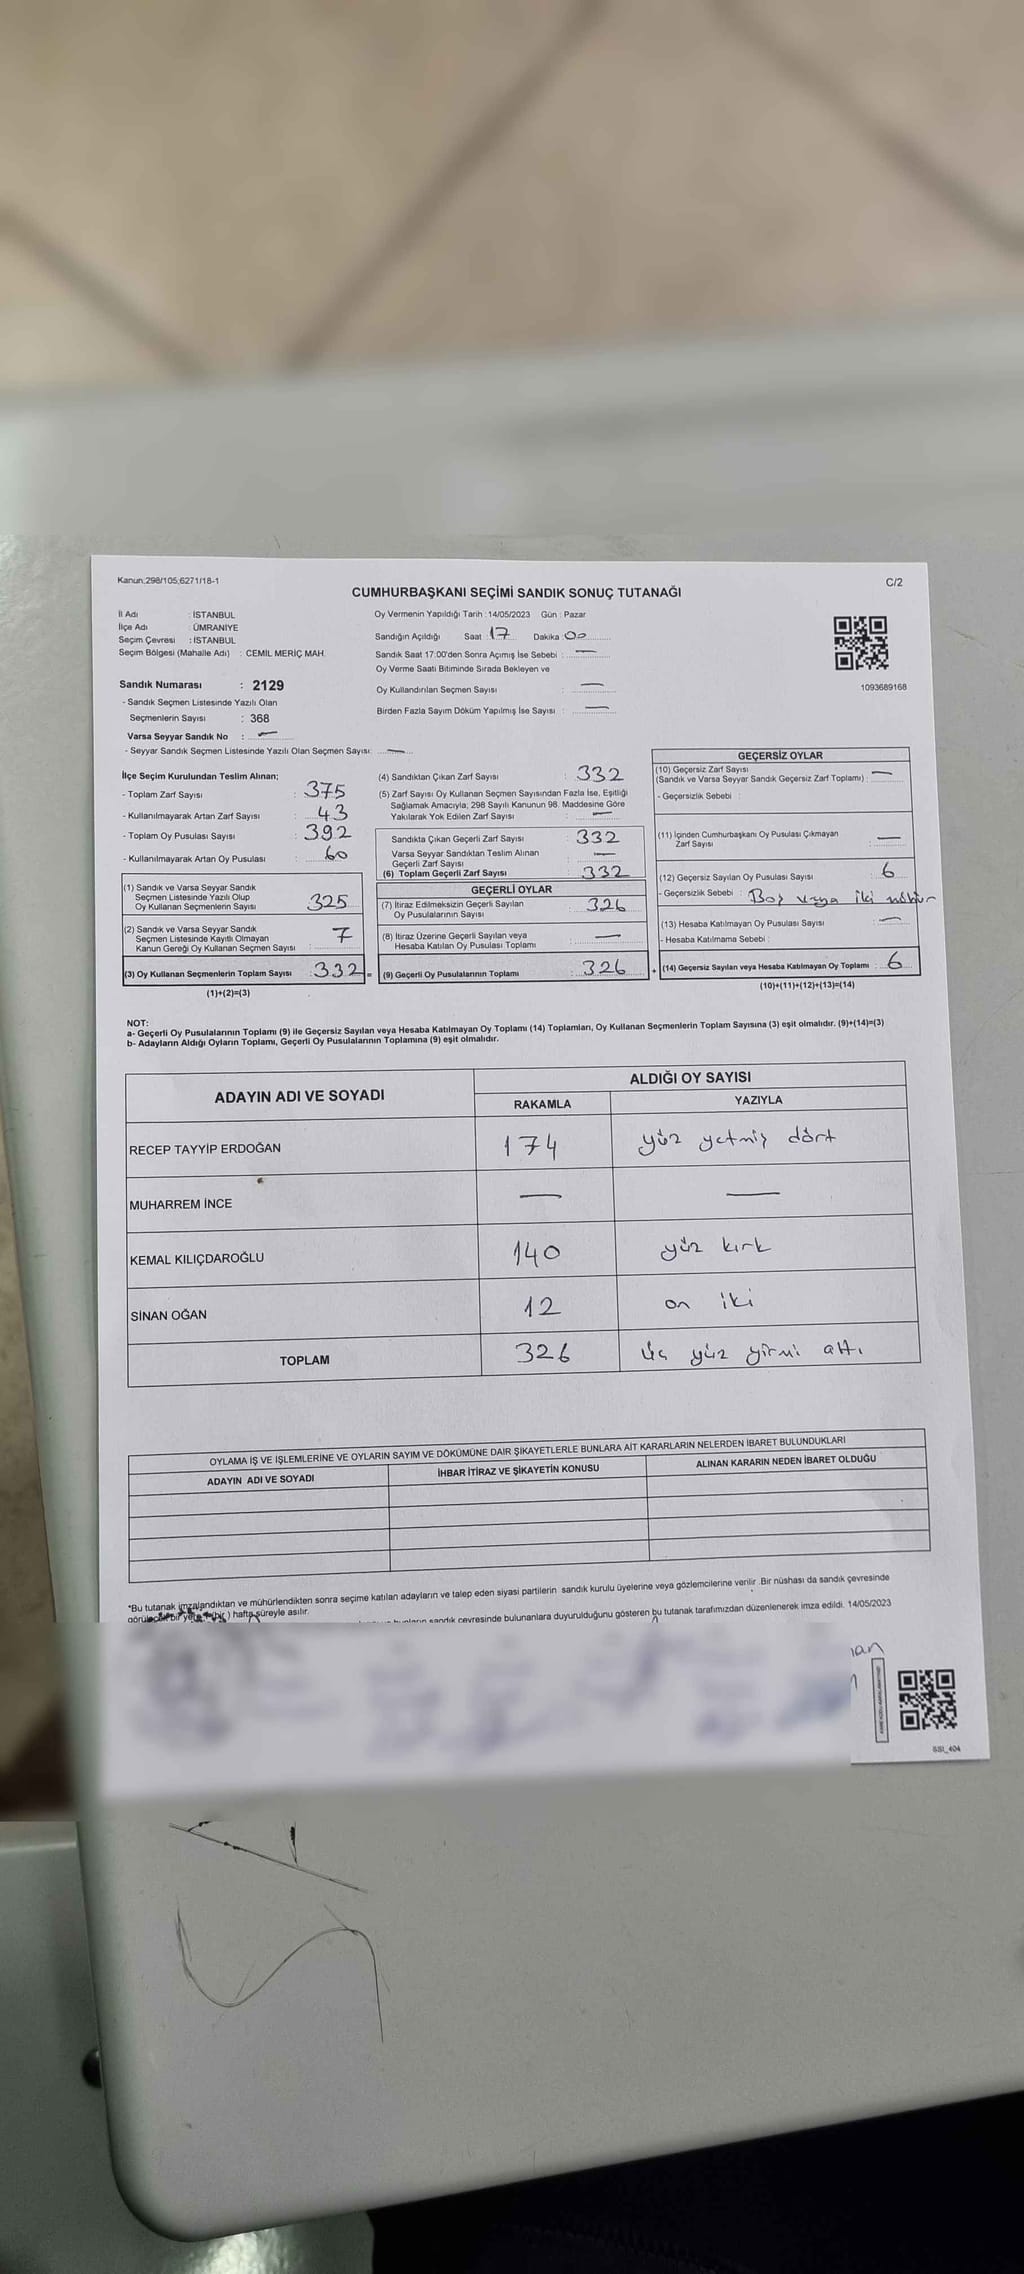 Kanun;298/105;6271/18-1
C/2
CUMHURBAŞKANI SEÇİMİ SANDIK SONUÇ TUTANAĞI
İl Adı : İSTANBUL
İlçe Adı : ÜMRANİYE
Seçim Çevresi : İSTANBUL
Seçim Bölgesi (Mahalle Adı) : CEMİL MERİÇ MAH.
Sandık Numarası : 2129
- Sandık Seçmen Listesinde Yazılı Olan
Seçmenlerin Sayısı : 368
Varsa Seyyar Sandık No : —
- Seyyar Sandık Seçmen Listesinde Yazılı Olan Seçmen Sayısı: —
Oy Vermenin Yapıldığı Tarih : 14/05/2023 Gün : Pazar
Sandığın Açıldığı Saat : 17 Dakika : 00
Sandık Saat 17:00'den Sonra Açımış İse Sebebi : —
Oy Verme Saati Bitiminde Sırada Bekleyen ve
Oy Kullandırılan Seçmen Sayısı : —
Birden Fazla Sayım Döküm Yapılmış İse Sayısı : —
1093689168
İlçe Seçim Kurulundan Teslim Alınan;
- Toplam Zarf Sayısı : 375
- Kullanılmayarak Artan Zarf Sayısı : 43
- Toplam Oy Pusulası Sayısı : 392
- Kullanılmayarak Artan Oy Pusulası : 60
(1) Sandık ve Varsa Seyyar Sandık
Seçmen Listesinde Yazılı Olup
Oy Kullanan Seçmenlerin Sayısı : 325
(2) Sandık ve Varsa Seyyar Sandık
Seçmen Listesinde Kayıtlı Olmayan
Kanun Gereği Oy Kullanan Seçmen Sayısı : 7
(3) Oy Kullanan Seçmenlerin Toplam Sayısı : 332 =
(1)+(2)=(3)
(4) Sandıktan Çıkan Zarf Sayısı : 332
(5) Zarf Sayısı Oy Kullanan Seçmen Sayısından Fazla İse, Eşitliği
Sağlamak Amacıyla, 298 Sayılı Kanunun 98. Maddesine Göre
Yakılarak Yok Edilen Zarf Sayısı : —
Sandıkta Çıkan Geçerli Zarf Sayısı : 332
Varsa Seyyar Sandıktan Teslim Alınan
Geçerli Zarf Sayısı : —
(6) Toplam Geçerli Zarf Sayısı : 332
GEÇERLİ OYLAR
(7) İtiraz Edilmeksizin Geçerli Sayılan
Oy Pusulalarının Sayısı : 326
(8) İtiraz Üzerine Geçerli Sayılan veya
Hesaba Katılan Oy Pusulası Toplamı : —
(9) Geçerli Oy Pusulalarının Toplamı : 326 +
GEÇERSİZ OYLAR
(10) Geçersiz Zarf Sayısı
(Sandık ve Varsa Seyyar Sandık Geçersiz Zarf Toplamı) : —
- Geçersizlik Sebebi :
(11) İçinden Cumhurbaşkanı Oy Pusulası Çıkmayan
Zarf Sayısı : —
(12) Geçersiz Sayılan Oy Pusulası Sayısı : 6
- Geçersizlik Sebebi : Boş veya iki mühür
(13) Hesaba Katılmayan Oy Pusulası Sayısı : —
- Hesaba Katılmama Sebebi :
(14) Geçersiz Sayılan veya Hesaba Katılmayan Oy Toplamı : 6
(10)+(11)+(12)+(13)=(14)
NOT:
a- Geçerli Oy Pusulalarının Toplamı (9) ile Geçersiz Sayılan veya Hesaba Katılmayan Oy Toplamı (14) Toplamları, Oy Kullanan Seçmenlerin Toplam Sayısına (3) eşit olmalıdır. (9)+(14)=(3)
b- Adayların Aldığı Oyların Toplamı, Geçerli Oy Pusulalarının Toplamına (9) eşit olmalıdır.
ADAYIN ADI VE SOYADI
ALDIĞI OY SAYISI
RAKAMLA YAZIYLA
RECEP TAYYİP ERDOĞAN 174 yüz yetmiş dört
MUHARREM İNCE — —
KEMAL KILIÇDAROĞLU 140 yüz kırk
SİNAN OĞAN 12 on iki
TOPLAM 326 üç yüz yirmi altı
OYLAMA İŞ VE İŞLEMLERİNE VE OYLARIN SAYIM VE DÖKÜMÜNE DAİR ŞİKAYETLERLE BUNLARA AİT KARARLARIN NELERDEN İBARET BULUNDUKLARI
ADAYIN ADI VE SOYADI İHBAR İTİRAZ VE ŞİKAYETİN KONUSU ALINAN KARARIN NEDEN İBARET OLDUĞU
*Bu tutanak imzalandıktan ve mühürlendikten sonra seçime katılan adayların ve talep eden siyasi partilerin sandık kurulu üyelerine veya gözlemcilerine verilir .Bir nüshası da sandık çevresinde
görülecek bir yere (bir ) hafta süreyle asılır.
sandık çevresinde bulunanlara duyurulduğunu gösteren bu tutanak tarafımızdan düzenlenerek imza edildi. 14/05/2023
SSI_404